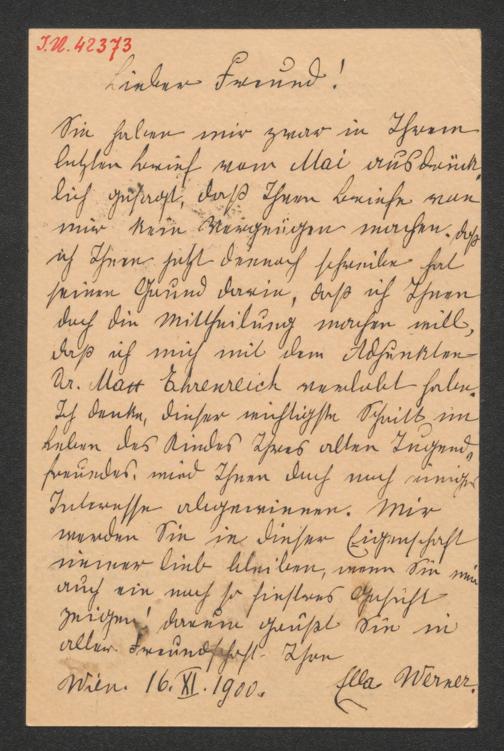 I.N. 42373
Lieber Freund!
Sie haben mir zwar in Ihrem
letzten Brief vom Mai ausdrück-
lich gesagt, daß Ihnen Briefe von
mir kein Vergnügen machen. daß
ich Ihnen jetzt dennoch schreibe hat
seinen Grund darin, daß ich Ihnen
doch die Mittheilung machen will,
daß ich mich mit dem Adjunkten
Dr. Max Ehrenreich verlobt habe.
Ich denke, dieser wichtigste Schritt im
Leben des Kindes Ihres alten Jugend-
freundes, wird Ihnen doch noch einiges
Interesse abgewinnen. Mir
werden Sie in dieser Eigenschaft
immer lieb bleiben, wenn Sie mir
auch ein noch so finstres Gesicht
zeigen! darum grüßt Sie in
aller Freundschaft Ihre
Wien. 16. XI. 1900. Ella Werner.